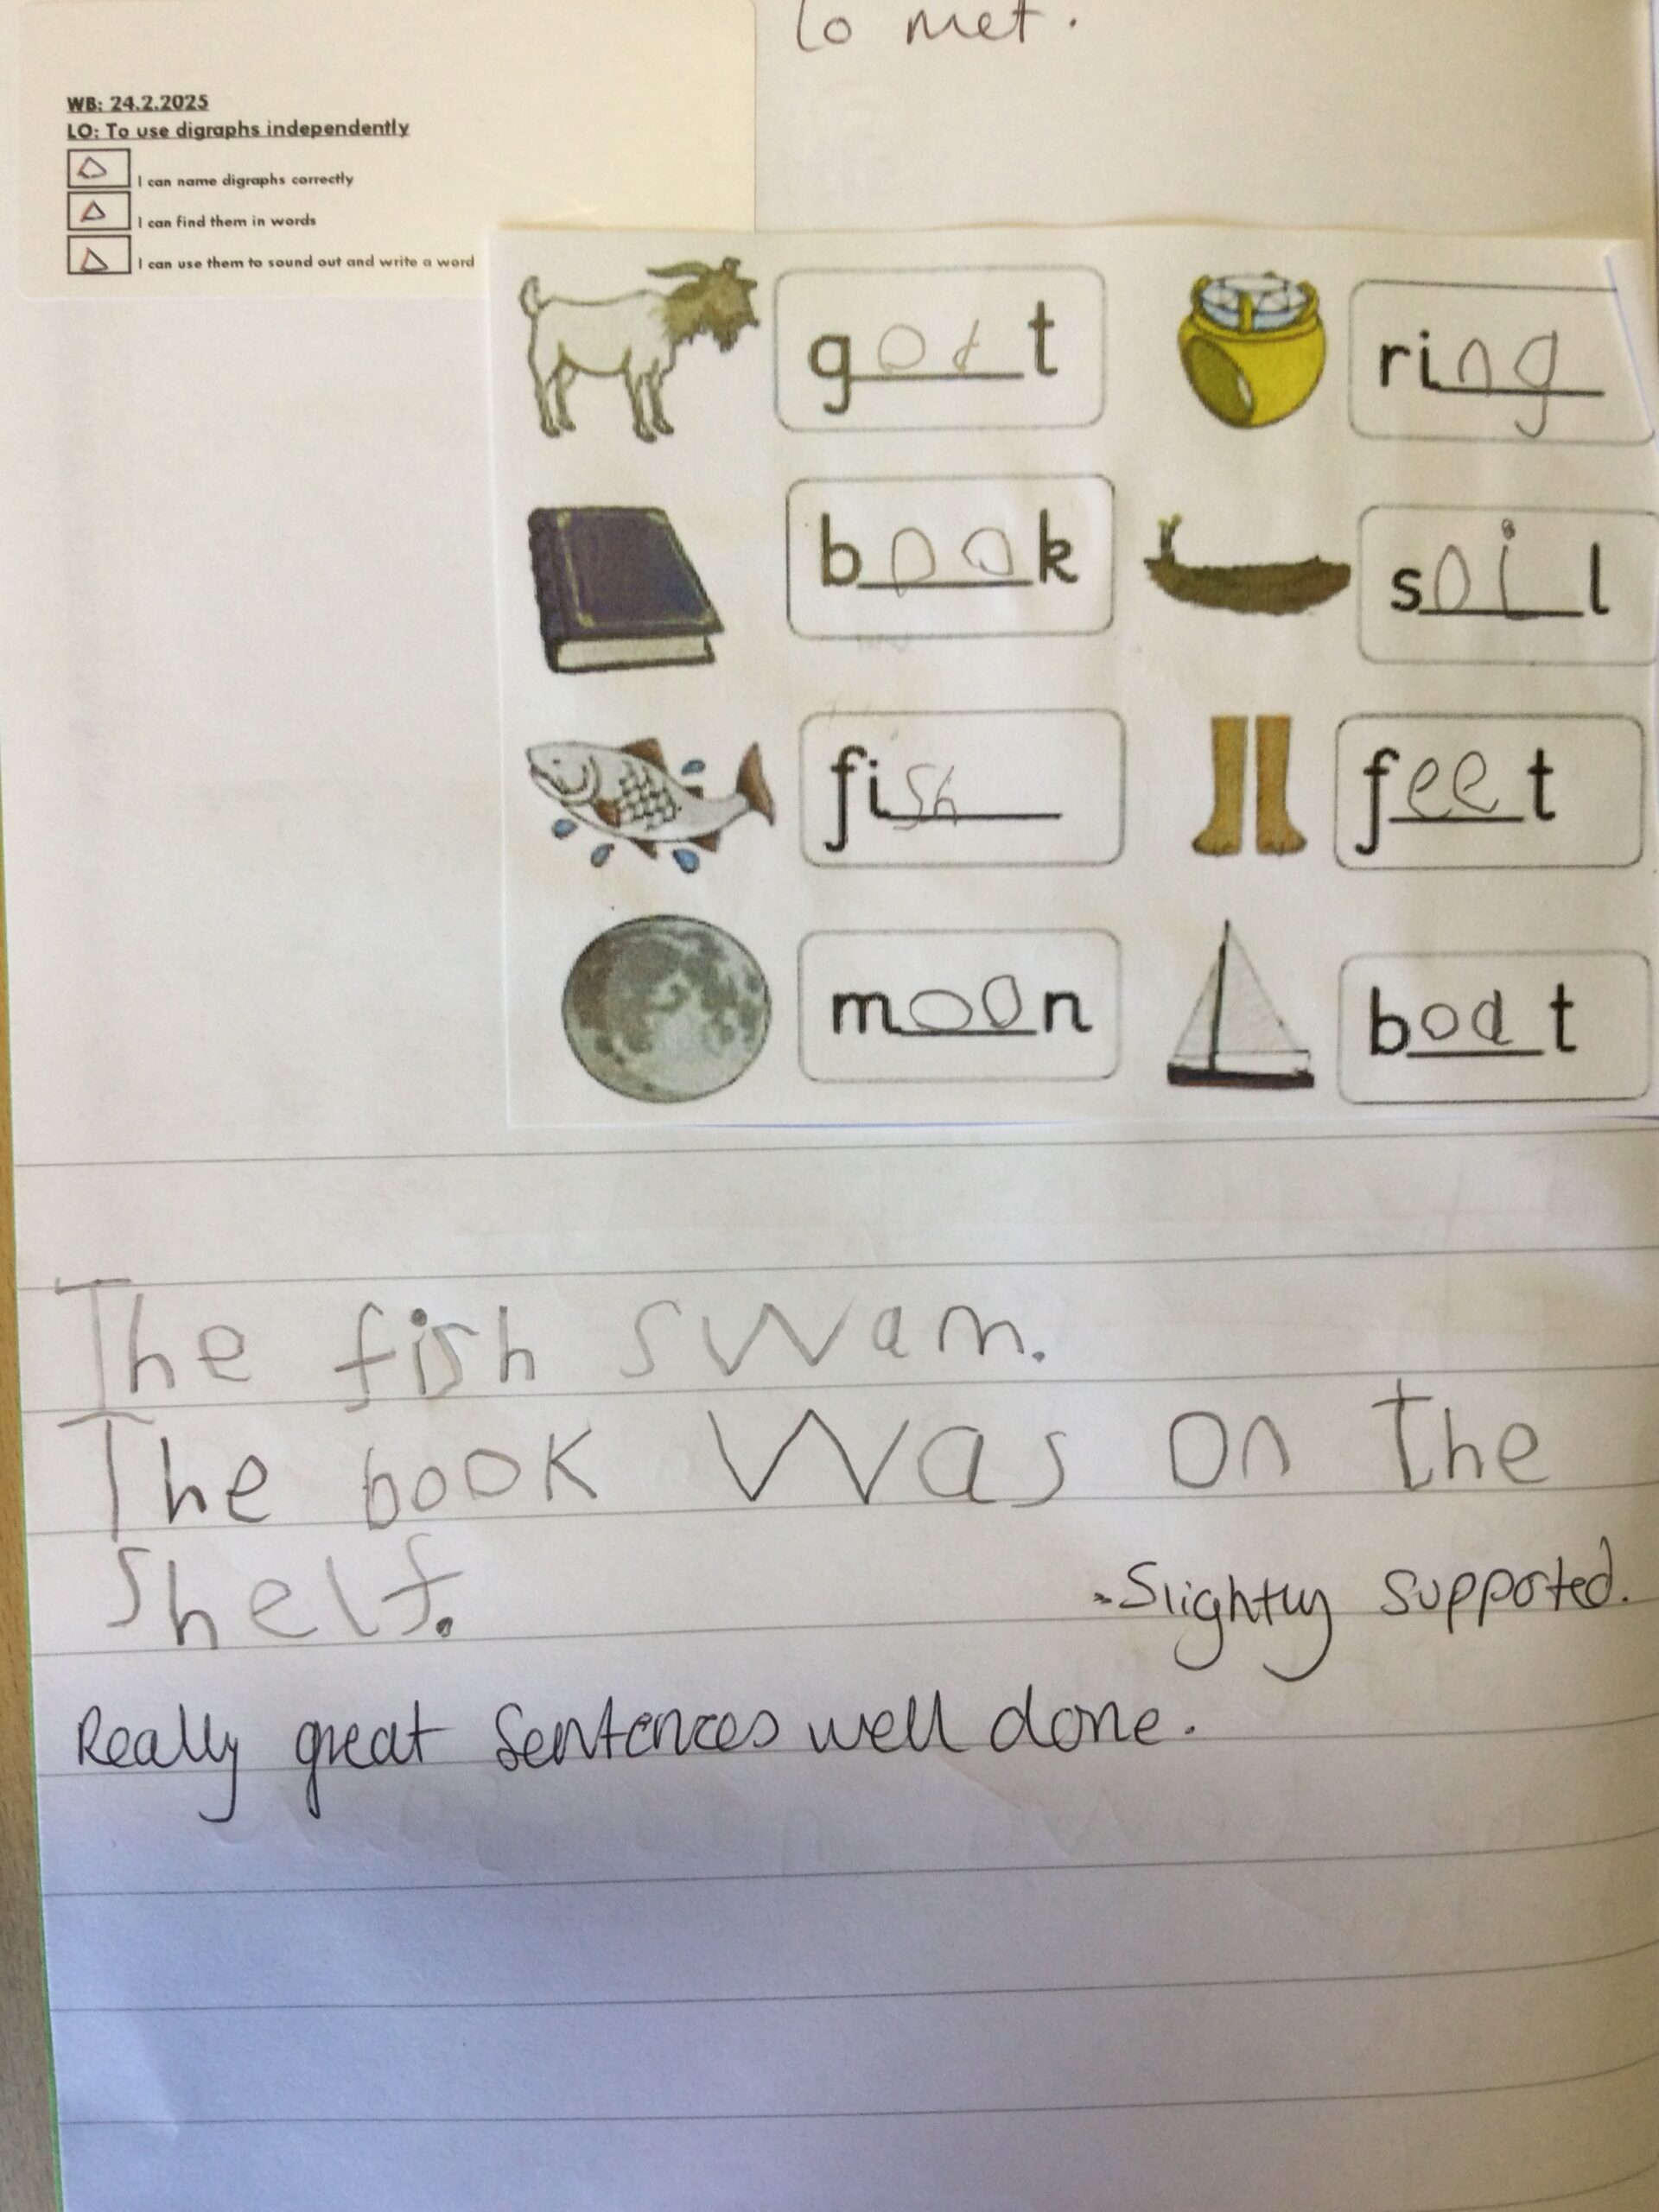 Lo met.
WB: 24.2.2025
LO: To use digraphs independently
I can name digraphs correctly
I can find them in words
I can use them to sound out and write a word
goat ring
book soil
fish feet
moon boat
The fish swam.
The book Was on the
shelf.
- Slightly supported.
Really great sentences well done.